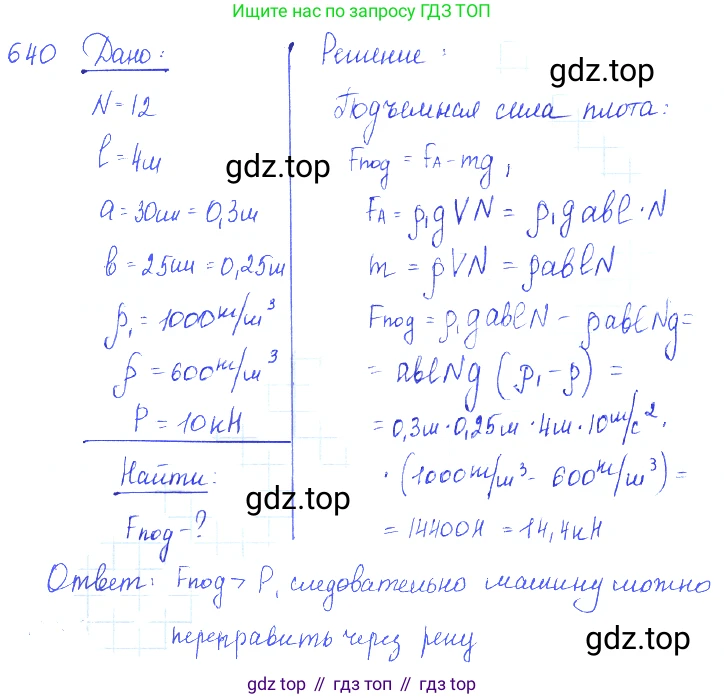 Ищите нас по запросу ГДЗ ТОП
640 Дано:
N = 12
l = 4м
a = 30см = 0,3м
b = 25см = 0,25м
ρ₁ = 1000 кг/м³
ρ = 600 кг/м³
P = 10кН
Найти:
Fпод - ?
Решение:
gdz.top
Подъемная сила плота:
gdz.top
Fпод = FA - mg,
FA = ρ₁gVN = ρ₁gabl·N
m = ρVN = ρablN
gdz.top
Fпод = ρ₁gablN - ρablNg =
= ablNg (ρ₁ - ρ) =
gdz.top
= 0,3м · 0,25м · 4м · 10 м/с² ·
· (1000 кг/м³ - 600 кг/м³) =
gdz.top
= 14400Н = 14,4кН
Ответ: Fпод > P, следовательно машину можно
переправить через реку
gdz.top
gdz.top // гдз топ // gdz top // гдз.топ